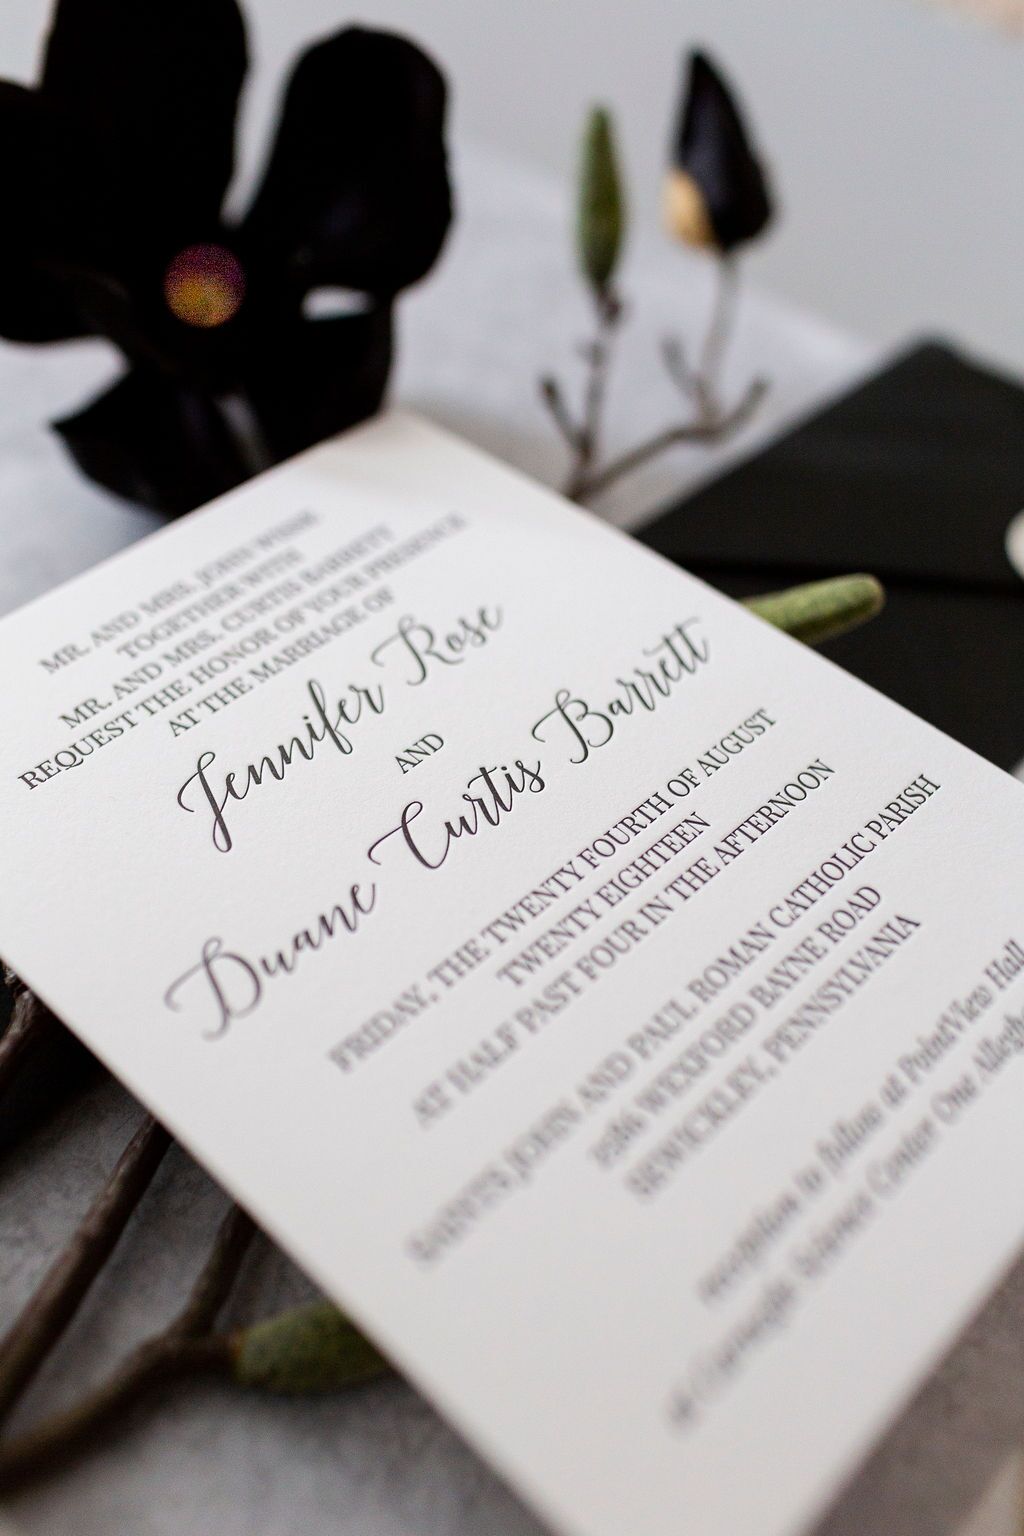 MR. AND MRS. JOHN
TOGETHER WITH
MR. AND MRS. CURTIS BARRETT
REQUEST THE HONOR OF YOUR PRESENCE
AT THE MARRIAGE OF
Jennifer Rose
AND
Duane Curtis Barrett
FRIDAY, THE TWENTY FOURTH OF AUGUST
TWENTY EIGHTEEN
AT HALF PAST FOUR IN THE AFTERNOON
SAINTS JOHN AND PAUL ROMAN CATHOLIC PARISH
2586 WEXFORD BAYNE ROAD
SEWICKLEY, PENNSYLVANIA
reception to follow at PointView Hall
at Carnegie Science Center One